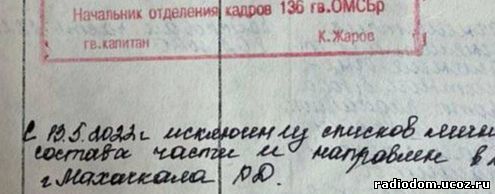 Начальник отделения кадров 136 гв.ОМСБр
гв.капитан К.Жаров
С 13.5.2022г исключен из списков личн
состава части и направлен в
г.Махачкала РД.
www.radiodom.org